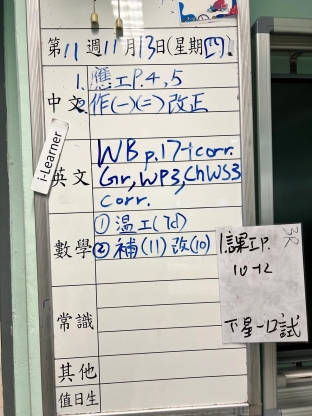 第11週11月13日(星期四)
1. 應工P.4,5
中文 2. 作(一)(二)改正
i-Learner
英文 WB p.17-1 corr.
Gr, WP3, ChWS3
corr.
① 温工(7d)
數學 ② 補(11) 改(10)
常識
其他
值日生
3R
1. 課工P.
10-12
下星一口試